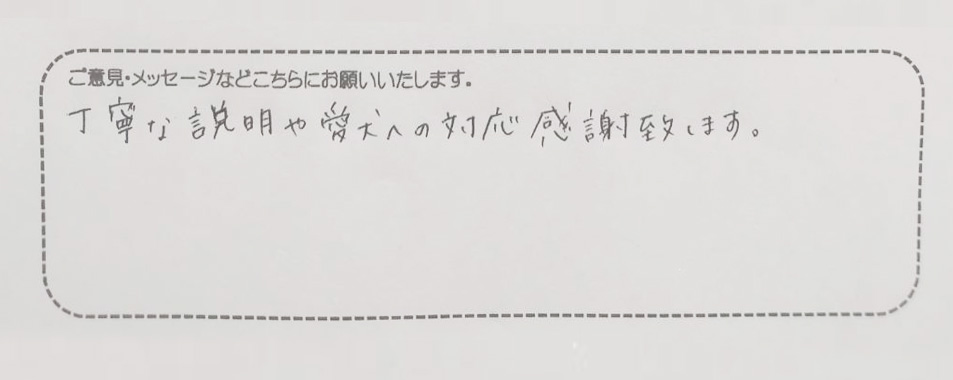 ご意見・メッセージなどこちらにお願いいたします。
丁寧な説明や愛犬への対応感謝致します。